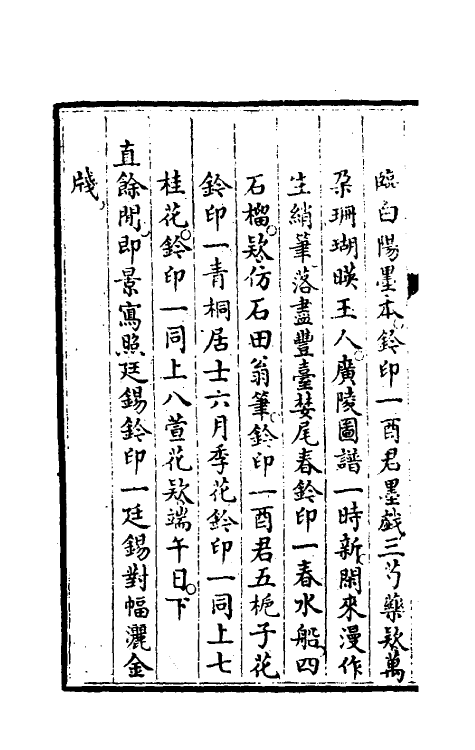 臨白陽墨本鈐印一酉君墨戲三芍藥欵萬
朶珊瑚暎玉人廣陵圖譜一時新閑來漫作
生綃筆落盡豐臺婪尾春鈐印一春水船四
石榴欵仿石田翁筆鈐印一酉君五梔子花
鈐印一青桐居士六月季花鈐印一同上七
桂花鈐印一同上八萱花欵端午日下
直餘閒即景寫照廷錫鈐印一廷錫對幅灑金
牋